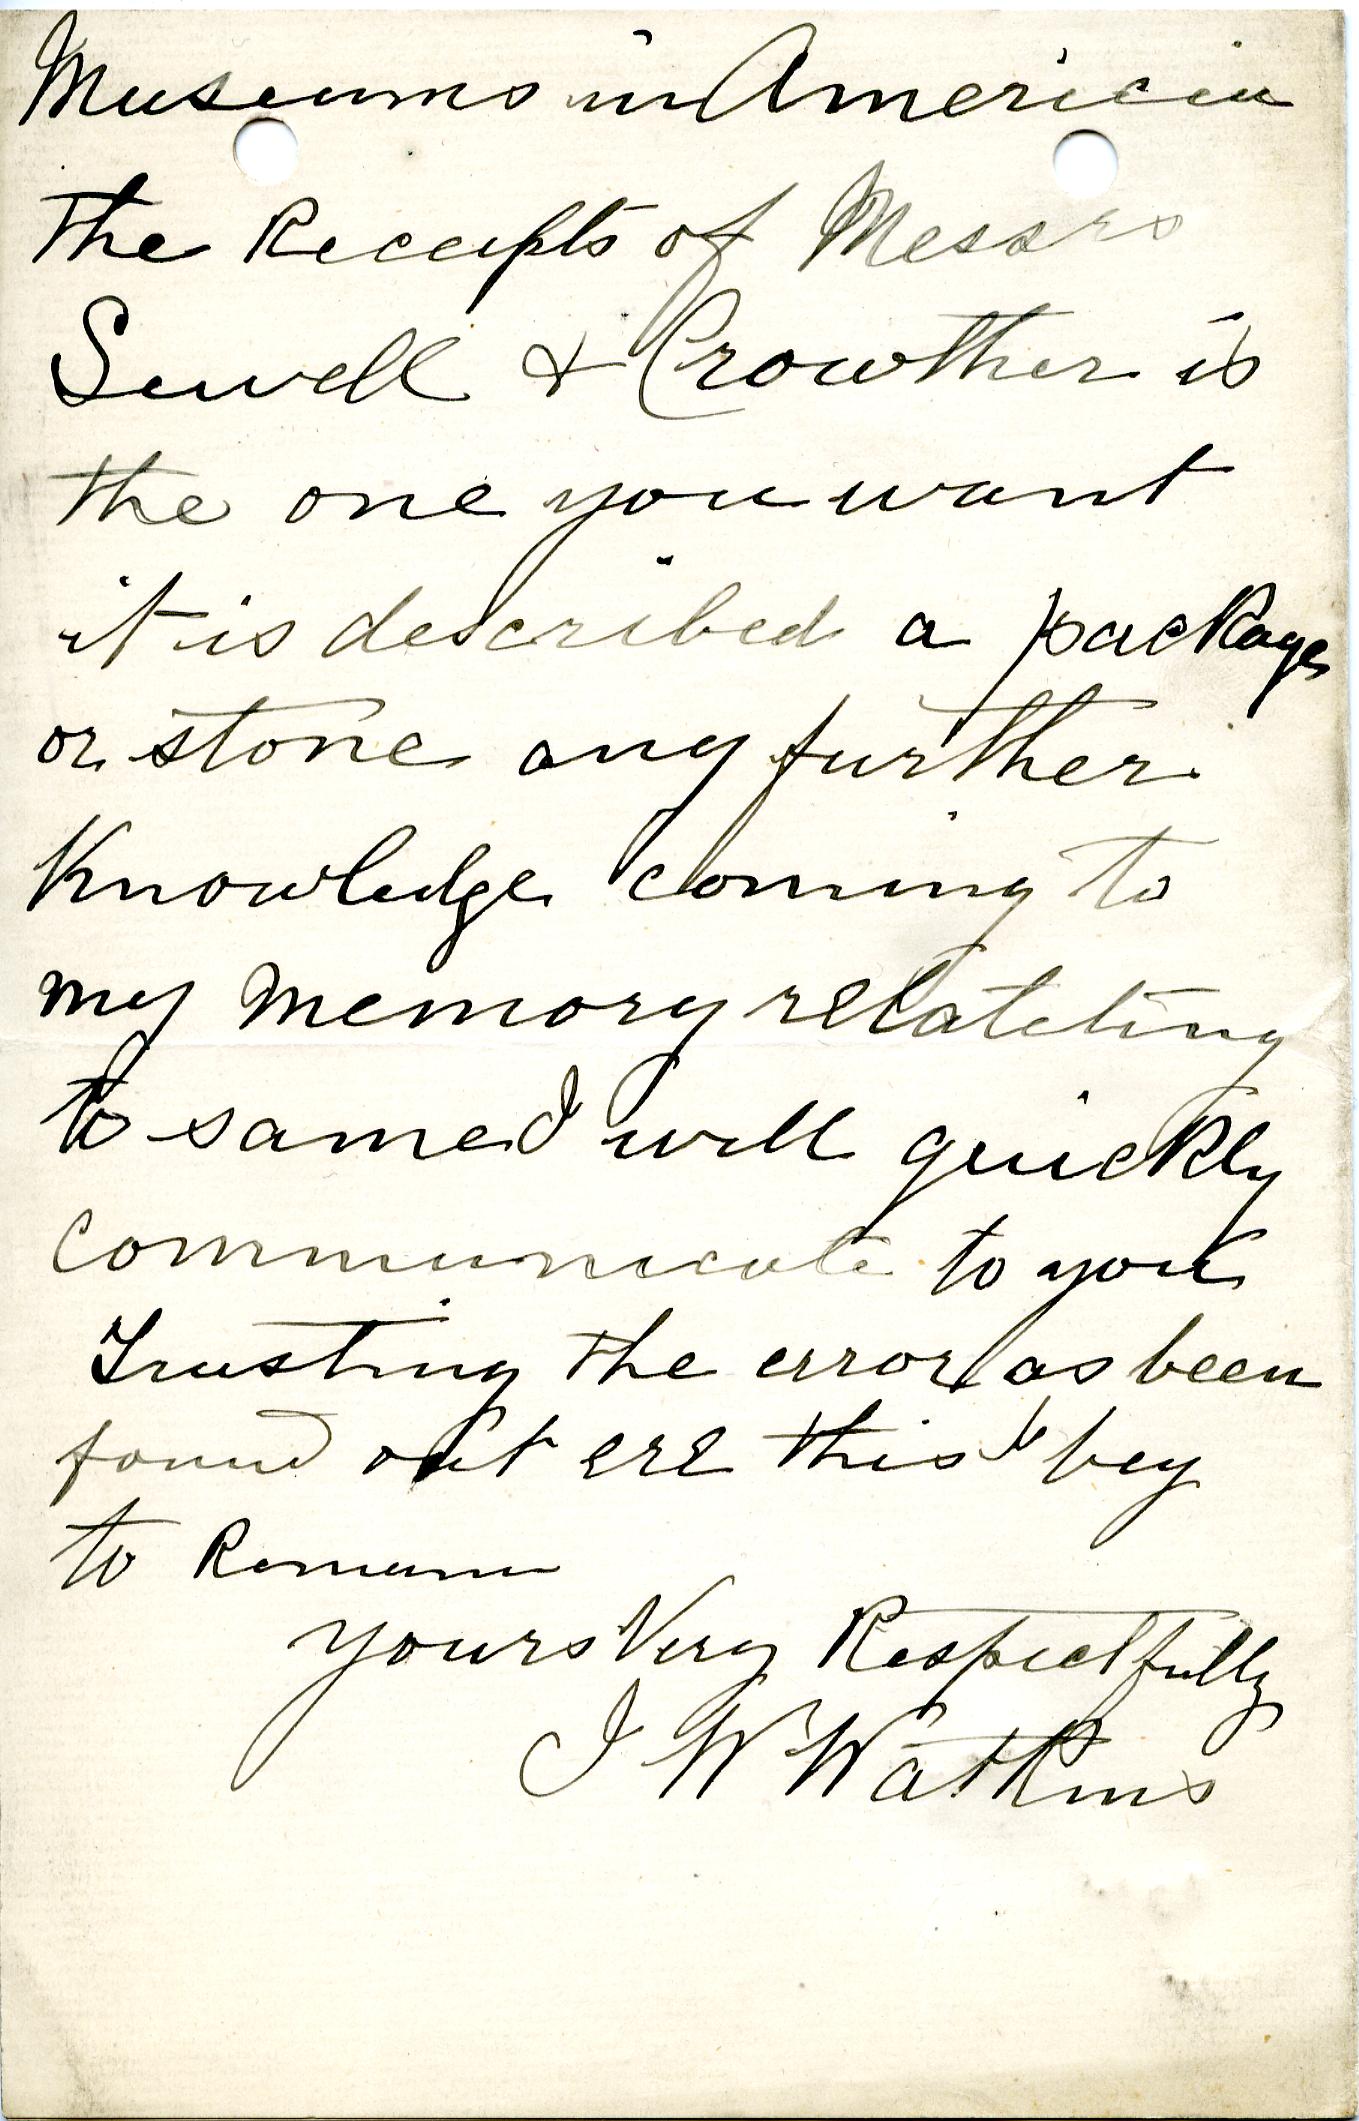 Museums in American
the Receipts of Messrs
Sewell & Crowther is
the one you want
it is described a package
or stone any further
Knowledge coming to
my memory relateting
to same I will quickly
communicate to you
Trusting the error as been
found out ere this I beg
to Remain
yours Very Respectfully
J W Watkins